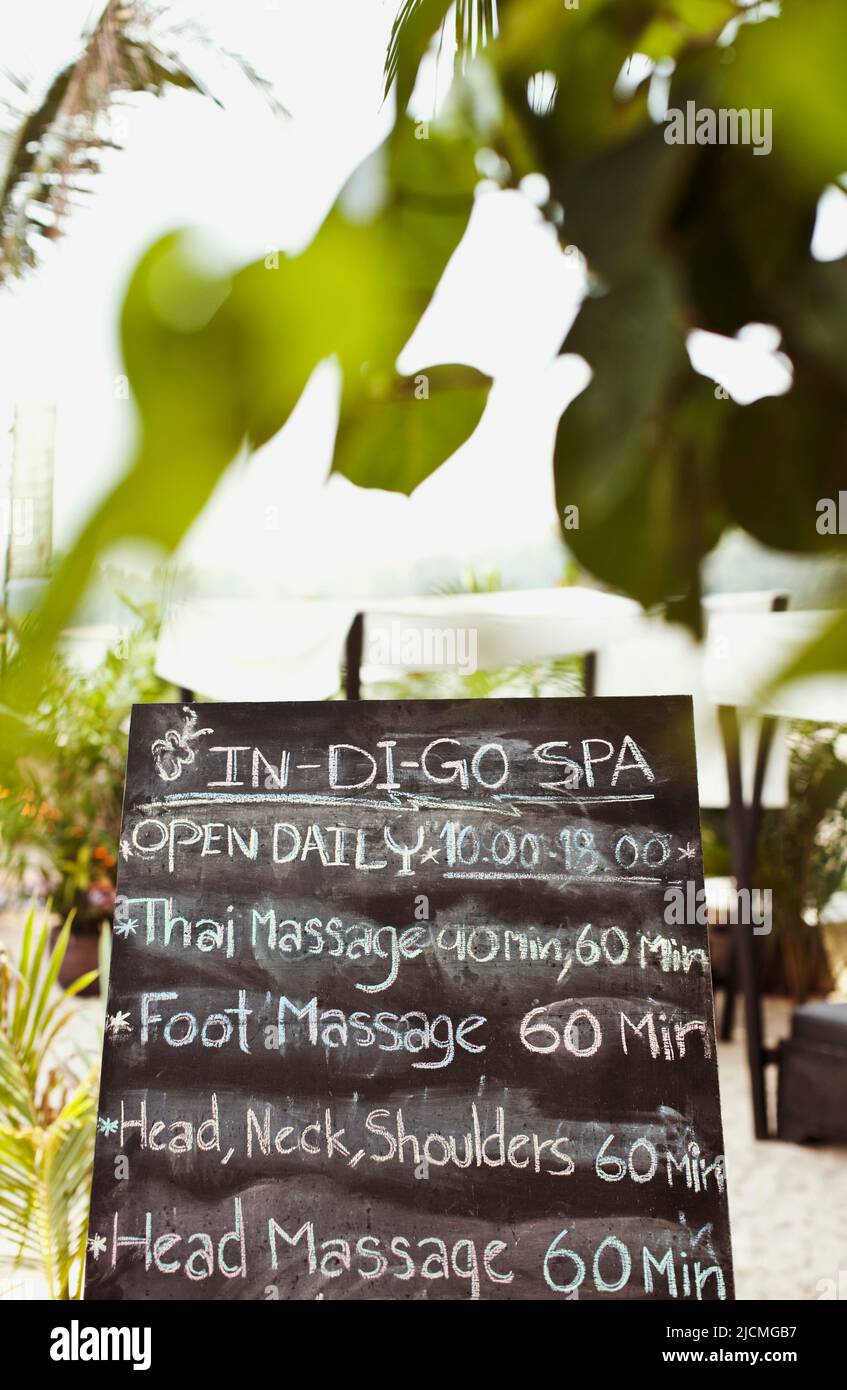 IN-DI-GO SPA
OPEN DAILY *10.00-18.00*
*Thai Massage 90 Min, 60 Min
*Foot Massage 60 Min
*Head, Neck, Shoulders 60 Min
*Head Massage 60 Min
alamy
Image ID: 2JCMGB7
www.alamy.com